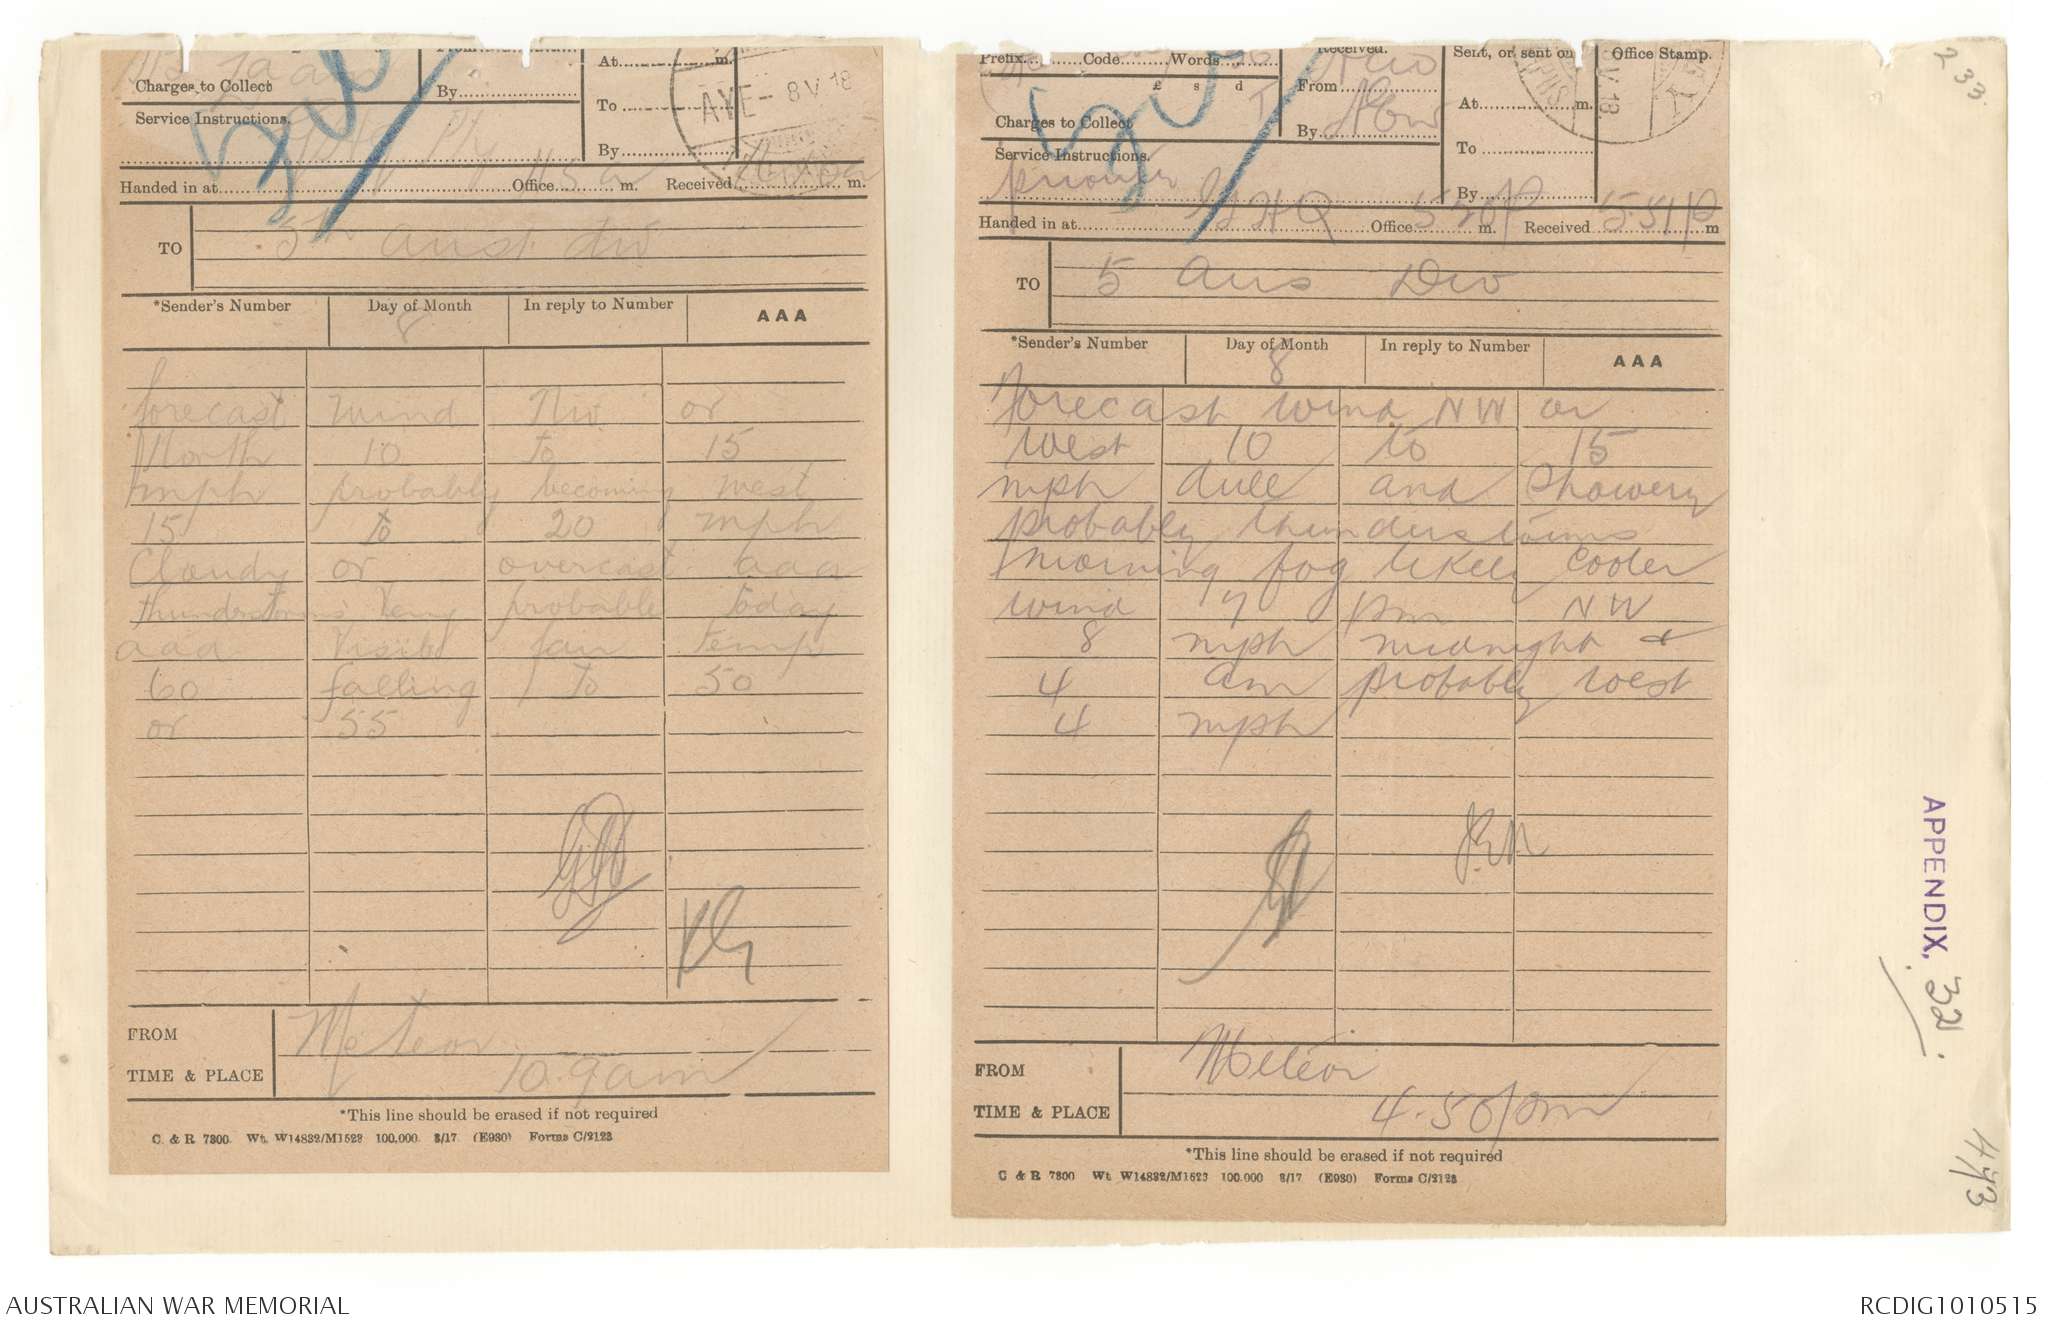 Charges to Collect
Service Instructions.
By
At m.
To
By
AYE- 8 V 18
Handed in at Office 115 a m. Received m.
TO 5th Aust div
*Sender's Number Day of Month In reply to Number AAA
8
forecast wind NW or
North 10 to 15
mph probably becoming west
15 to 20 mph
Cloudy or overcast aaa
thunderstorms very probable today
aaa Visib fair temp
60 falling to 50
or 55
FROM Meteor
TIME & PLACE 10.9 am
*This line should be erased if not required
C. & R. 7300. Wt. W14832/M1523 100,000. 8/17. (E930) Forms C/2123
Prefix Code Words
Received.
Sent, or sent out
Office Stamp.
£ s d
From
By
Charges to Collect
At m.
To
By
Service Instructions.
Priority
Handed in at GHQ Office 550 P m. Received 5.51 P m
TO 5 Aus Div
*Sender's Number Day of Month In reply to Number AAA
8
Forecast wind NW or
West 10 to 15
mph dull and Showery
probably thunderstorms
morning fog likely cooler
wind 7 pm NW
8 mph midnight &
4 am probably West
4 mph
FROM Meteor
TIME & PLACE 4.50 pm
*This line should be erased if not required
C & R 7300 Wt W14832/M1523 100,000 8/17 (E930) Forms C/2123
233
APPENDIX, 32.
443
AUSTRALIAN WAR MEMORIAL
RCDIG1010515